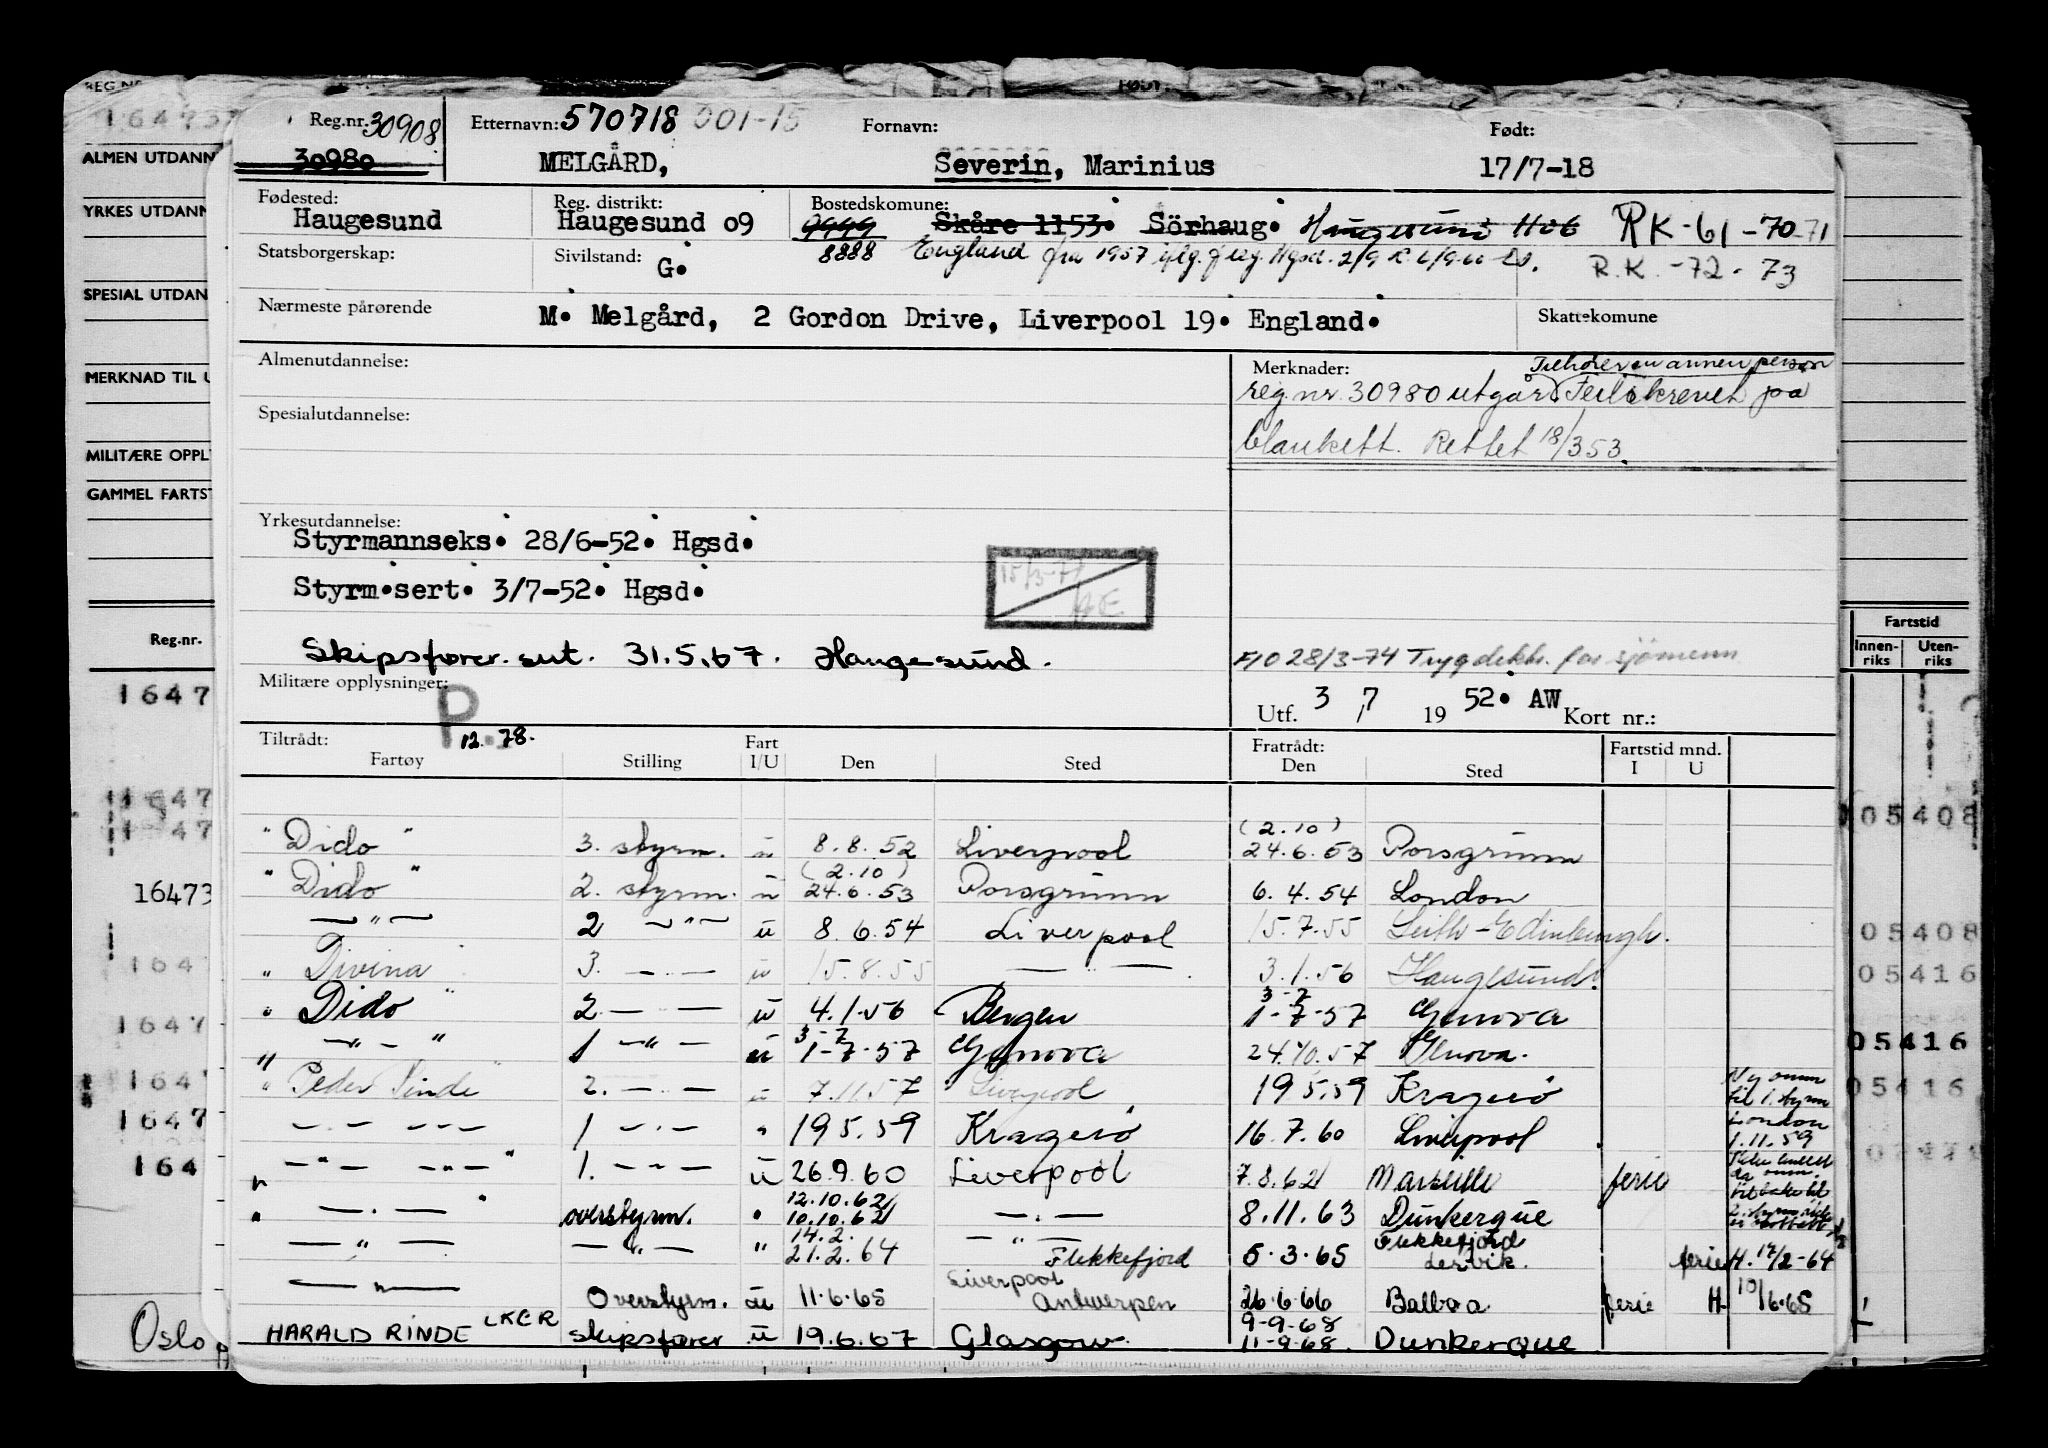 REG.NR.
16473
ALMEN UTDANN
YRKES UTDANN
SPESIAL UTDAN
MERKNAD TIL U
MILITÆRE OPPL
GAMMEL FARTST
Reg.nr.
1647
1647
1 47
16473
164
1647
1647
1647
164
Oslo
Reg.nr. 30908
30980
Etternavn: 570718 001-15
Fornavn:
Født:
MELGÅRD,
Severin, Marinius
17/7-18
Fødested:
Haugesund
Reg. distrikt:
Haugesund 09
Bostedskomune:
9999 Skåre 1153. Sörhaug. Haugesund RK-61-70-71
Statsborgerskap:
Sivilstand: G.
8888 England fra 1957 iflg. Hgsd. 2/9
R.K.-72-73
Nærmeste pårørende
M. Melgård, 2 Gordon Drive, Liverpool 19. England.
Skattekomune
Almenutdannelse:
Merknader:
Tilhører en annen person
reg.nr. 30980 utgår. Feilskrevet på
Spesialutdannelse:
blankett. Rettet 18/353.
Yrkesutdannelse:
Styrmannseks. 28/6-52. Hgsd.
Styrm.sert. 3/7-52. Hgsd.
15/3-71
Skipsfører. sert. 31.5.67. Haugesund.
F/O 28/3-74 Trygdekk. for sjömenn
Militære opplysninger:
P
12.78.
Utf. 3/7 1952. AW Kort nr.:
Tiltrådt:
Fart
Fratrådt:
Fartstid mnd.
Fartøy Stilling I/U Den Sted Den Sted I U
(2.10)
" Dido " 3. styrm. u 8.8.52 Liverpool 24.6.53 Porsgrunn
(2.10)
" Dido " 2. styrm. u 24.6.53 Porsgrunn 6.4.54 London
—"— 2 —"— u 8.6.54 Liverpool 15.7.55 Leith-Edinburgh.
" Divina " 3. —"— u 15.8.55 —"— 3.1.56 Haugesund.
3-7
" Dido " 2. —"— u 4.1.56 Bergen 1-7-57 Genova
3-7
—"—" 1 —"— u 1-7-57 Genova 24.10.57 Genova.
" Peder Rinde " 2. —"— u 7.11.57 Liverpool 19.5.59 Kragerö
Ny omm til 1. styrm London 1.11.59
—"— —"— 1 —"— " 19.5.59 Kragerö 16.7.60 Liverpool
—"— —"— 1. —"— u 26.9.60 Liverpool 7.8.62 Marseille ferie
12.10.62
—"— overstyrm. " 10.10.62 —"— 8.11.63 Dunkerque
14.2.
Flekkefjord
—"— —"— " 21.2.64 —"— Flekkefjord 5.3.65 Lervik. ferie H. 17/2-64
Liverpool
—"— Overstyrm. u 11.6.65 Antwerpen 26.6.66 Balboa ferie H 10/6.65
9-9-68
HARALD RINDE LKER skipsfører u 19.6.67 Glasgow. 11-9-68. Dunkerque
Fartstid
Innen-riks
Uten-riks
05408
05408
05416
05416
05416